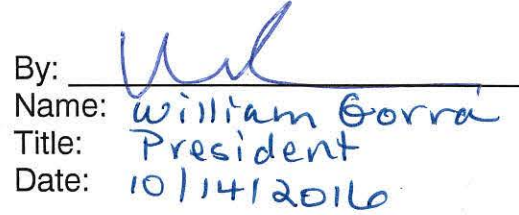 By:
Name: William Gorra
Title: President
Date: 10/14/2016